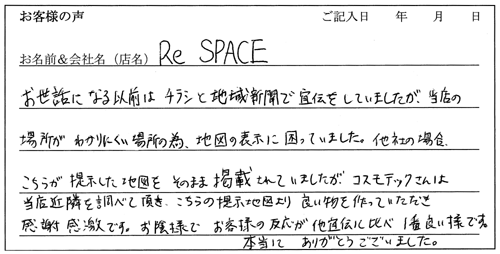 お客様の声 ご記入日 年 月 日
お名前&会社名(店名) Re SPACE
お世話になる以前はチラシと地域新聞で宣伝をしていましたが、当店の
場所がわかりにくい場所の為、地図の表示に困っていました。他社の場合、
こちらが提示した地図をそのまま掲載されていましたがコスモテックさんは
当店近隣を調べて頂き、こちらの提示地図より良い物を作っていただき
感謝感激です。お陰様でお客様の反応が他宣伝に比べ1番良い様です。
本当にありがとうございました。